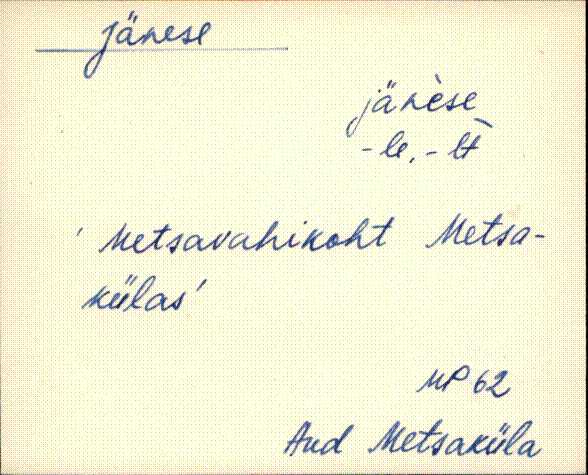 jänese
jänèse
-le, -lt
'Metsavahikoht Metsa-
külas'
MP 62
Aud Metsaküla